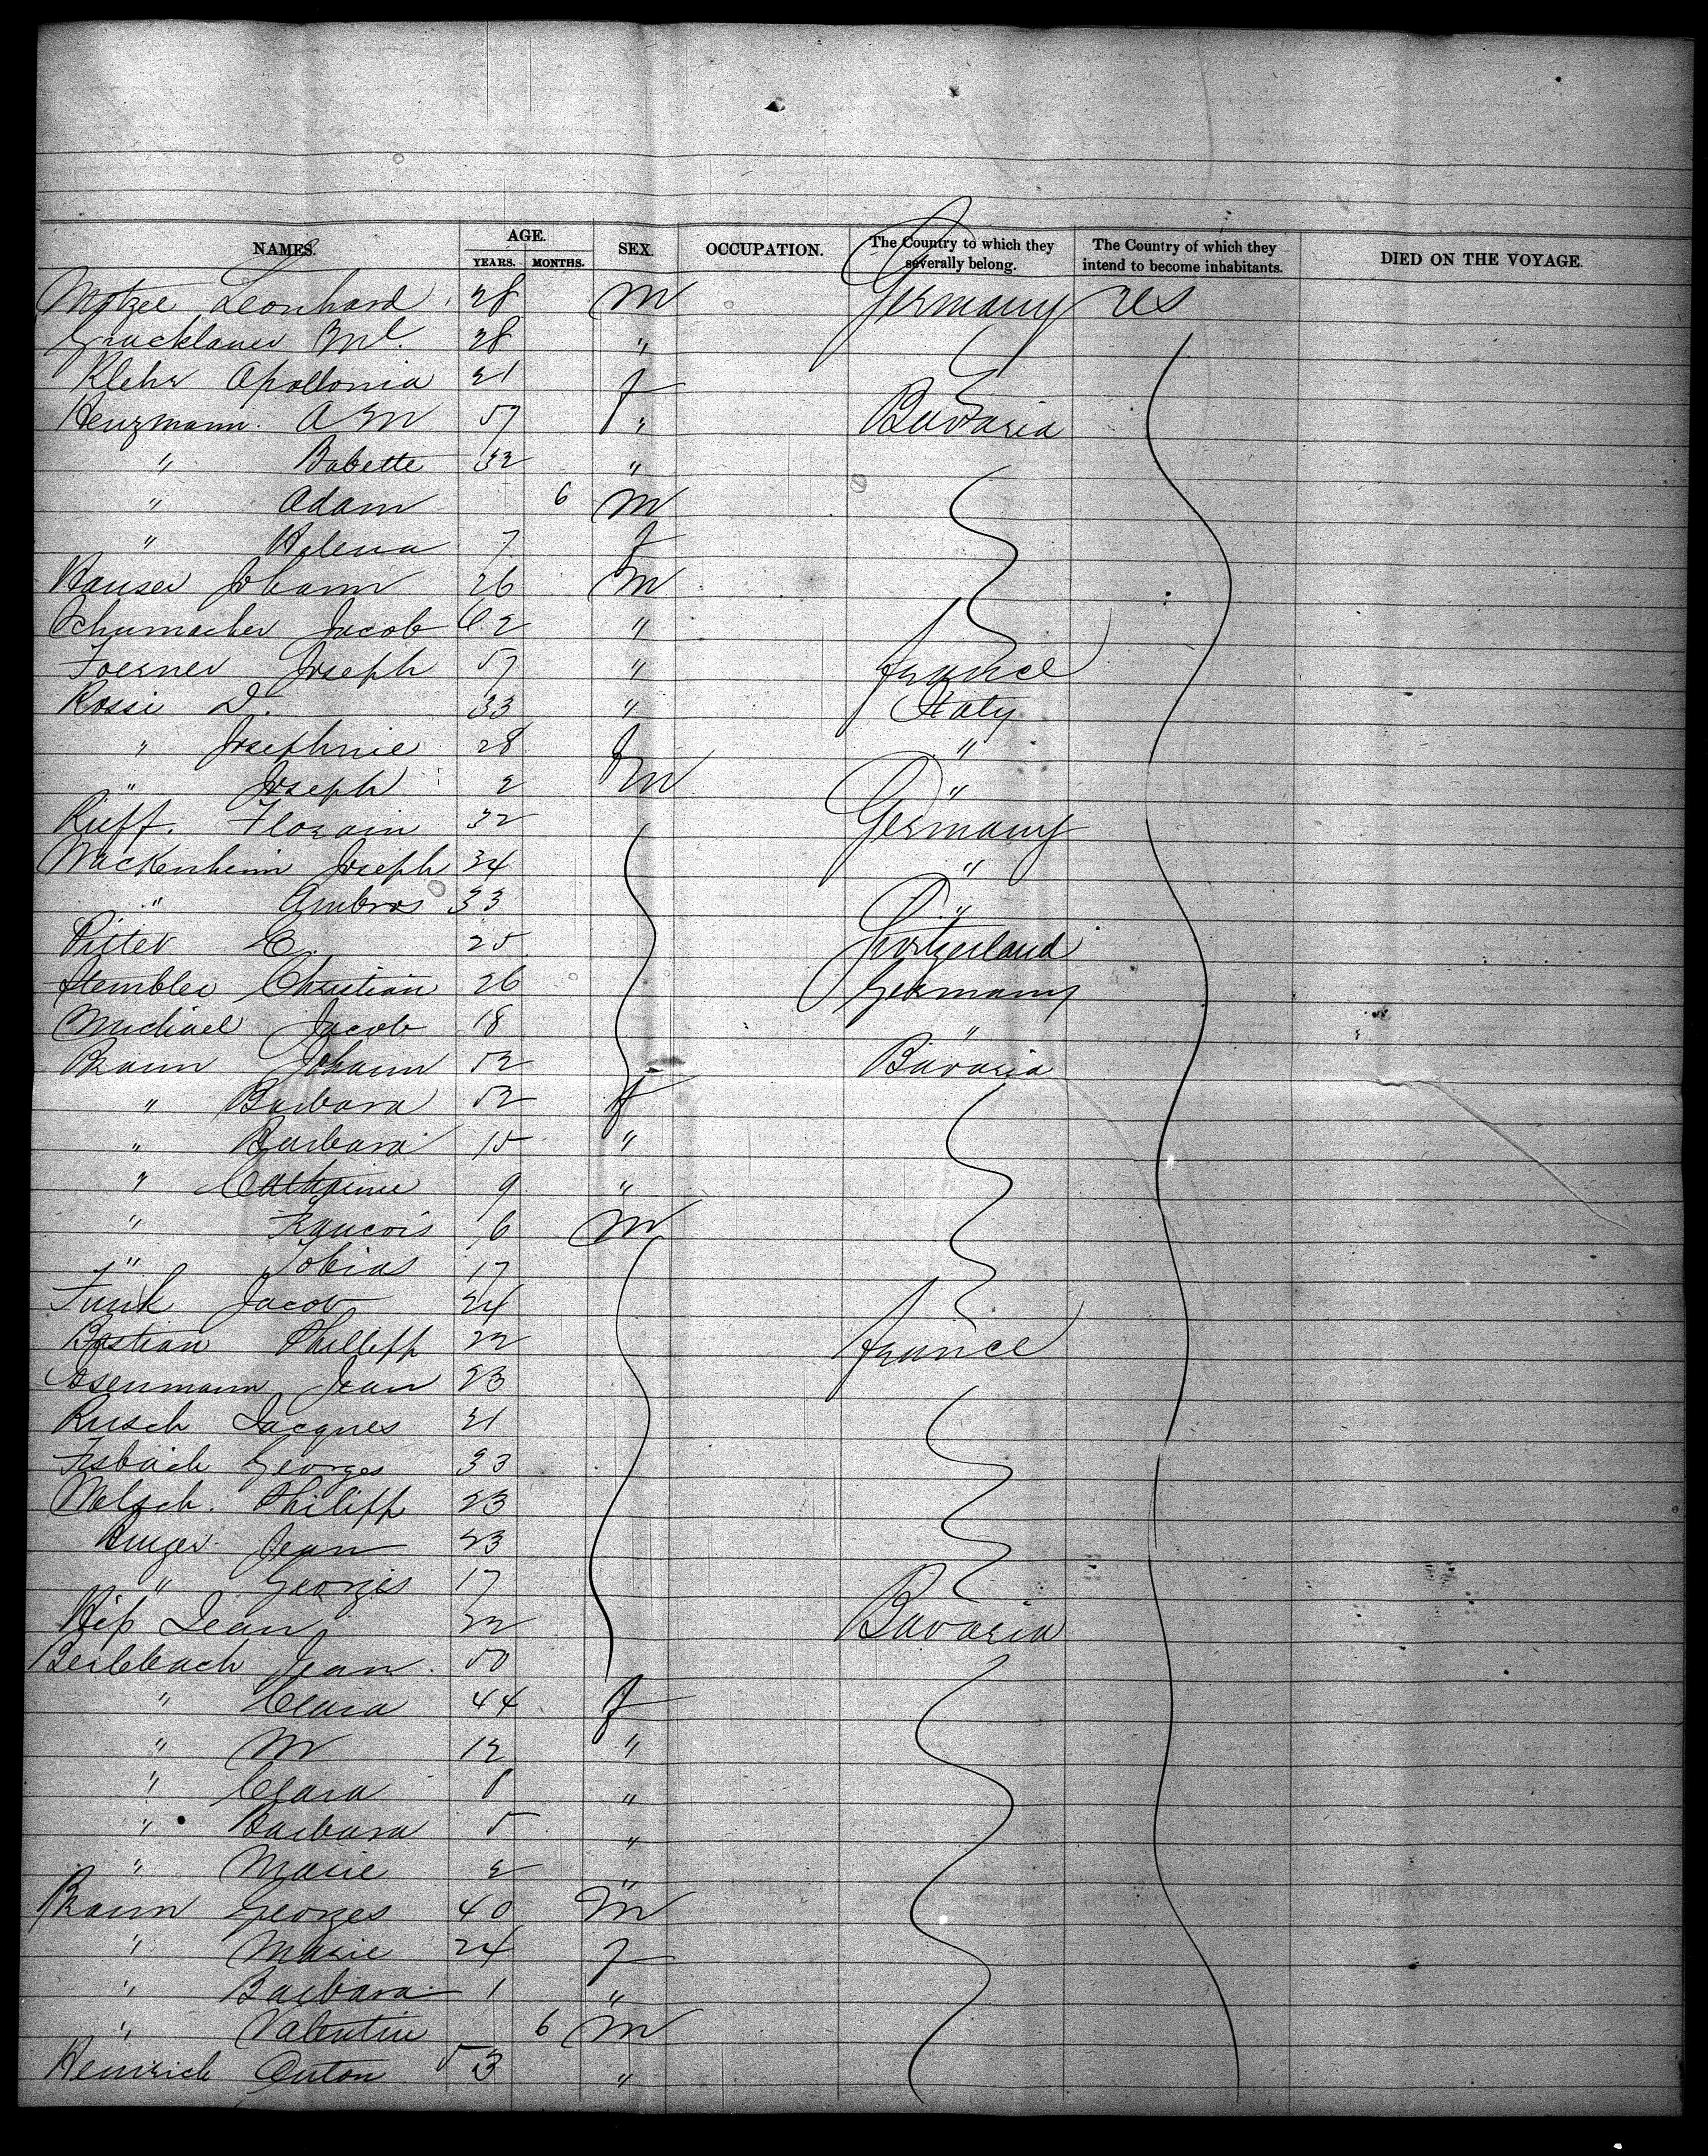 NAMES. AGE. SEX. OCCUPATION. The Country to which they severally belong. The Country of which they intend to become inhabitants. DIED ON THE VOYAGE.
YEARS. MONTHS.
Leonhard 28 M Germany
28 "
Klehr Apollonia 21 f
Henzmann A M 57 " Bavaria
" Babette 32 "
" Adam 6 M
" Helena 7 f
Hauser Johann 26 M
Schumacher Jacob 62 "
Foerner Joseph 57 " france
Rossi D. 33 " Italy
" Josephine 28 f "
" Joseph 2 M "
Rieff Florain 32 Germany
Wackenheim Joseph 34 "
" Ambros 33 "
Pittet E. 25 Switzerland
Stembler Christian 26 Germany
Michael Jacob 18 "
Braun Johann 52 Bavaria
" Barbara 52 f
" Barbara 15 "
" Catherine 9 "
" Francois 6 M
" Tobias 17
Funk Jacob 24
Bastian Phillipp 22 france
Jean 23
Rusch Jacques 21
Fisbach Georges 33
Welsch Philipp 23
Jean 23
" Georges 17
Hip Jean 32 Bavaria
Jean 50
" Clara 44 f
" M 12 "
" Clara 8 "
" Barbara 5 "
" Marie 2 "
Braun Georges 40 M
" Marie 24 f
" Barbara 1 "
" Valentin 6 M
Heinrich Anton 53 "